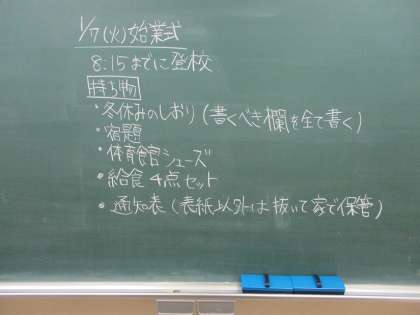 1/7(火)始業式
8:15までに登校
持ち物
・冬休みのしおり(書くべき欄を全て書く)
・宿題
・体育館シューズ
・給食4点セット
・通知表(表紙以外は抜いて家で保管)